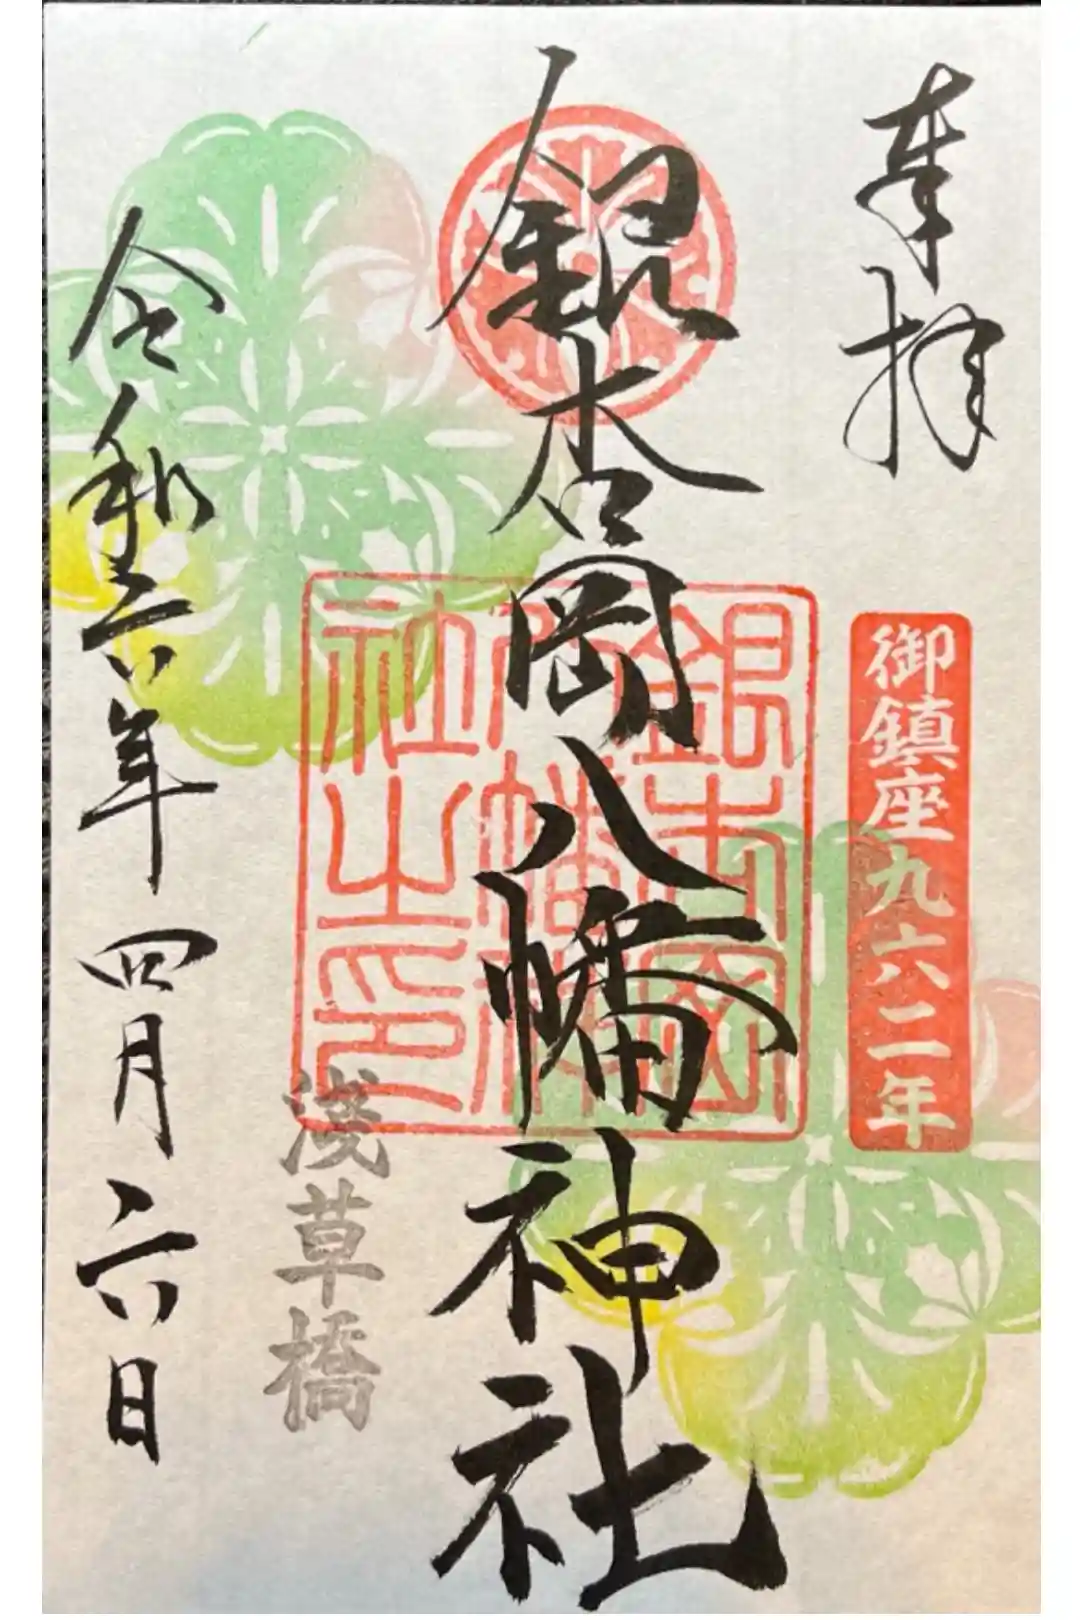 奉拝
御鎮座九六二年
銀杏岡八幡神社
銀杏岡八幡神社之印
浅草橋
令和六年四月六日